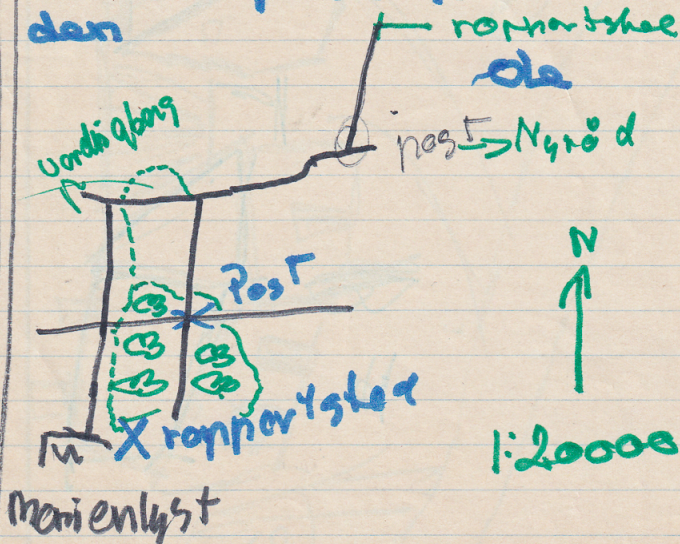 den
roppertshee
Ole
post → Nyrå d
vordingborg
N
Post
X roppertshee
1:20000
M
Marienlyst